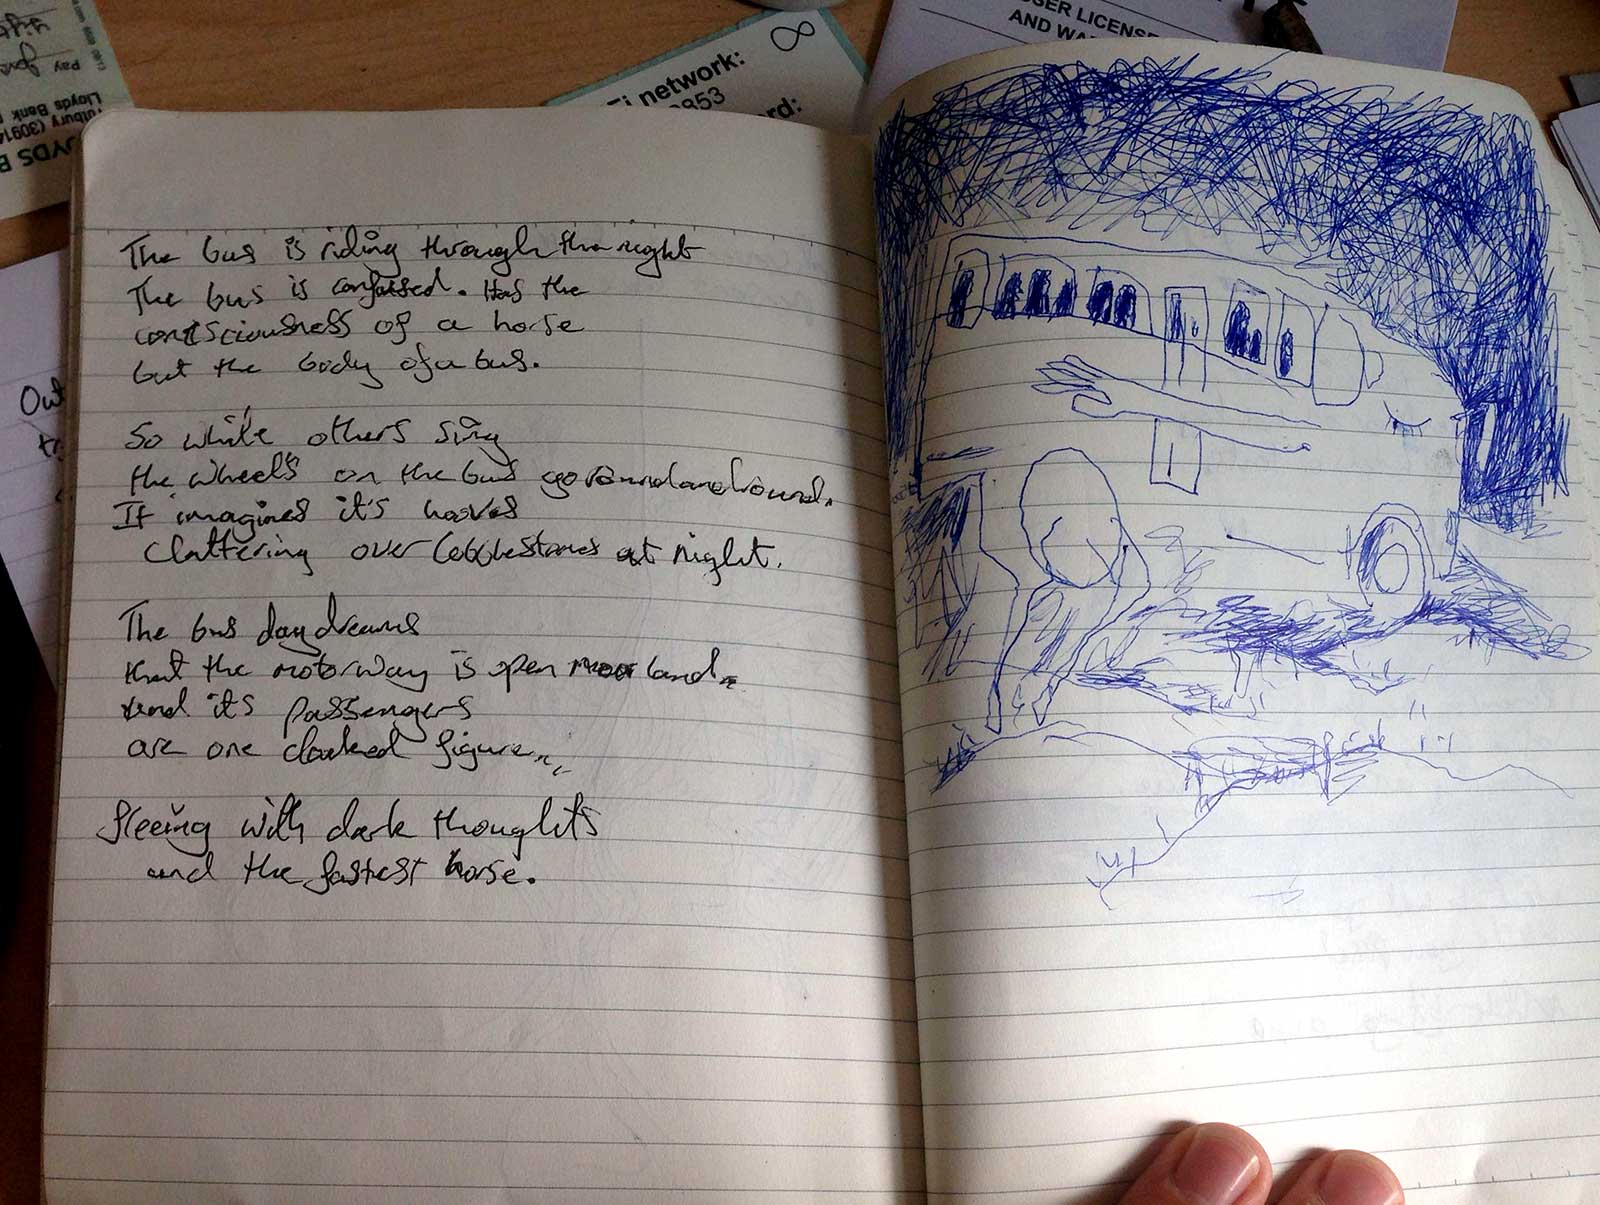 The bus is riding through the night
The bus is confused. Has the
consciousness of a horse
but the body of a bus.
So while others sing
the wheels on the bus go round and round.
It imagines it's hooves
clattering over cobblestones at night.
The bus daydreams
that the motorway is open moorland
and its passengers
are one cloaked figure...
fleeing with dark thoughts
and the fastest horse.
network:
0853
GER LICENSE
AND WA
Lloyds Bank
Pay
Out